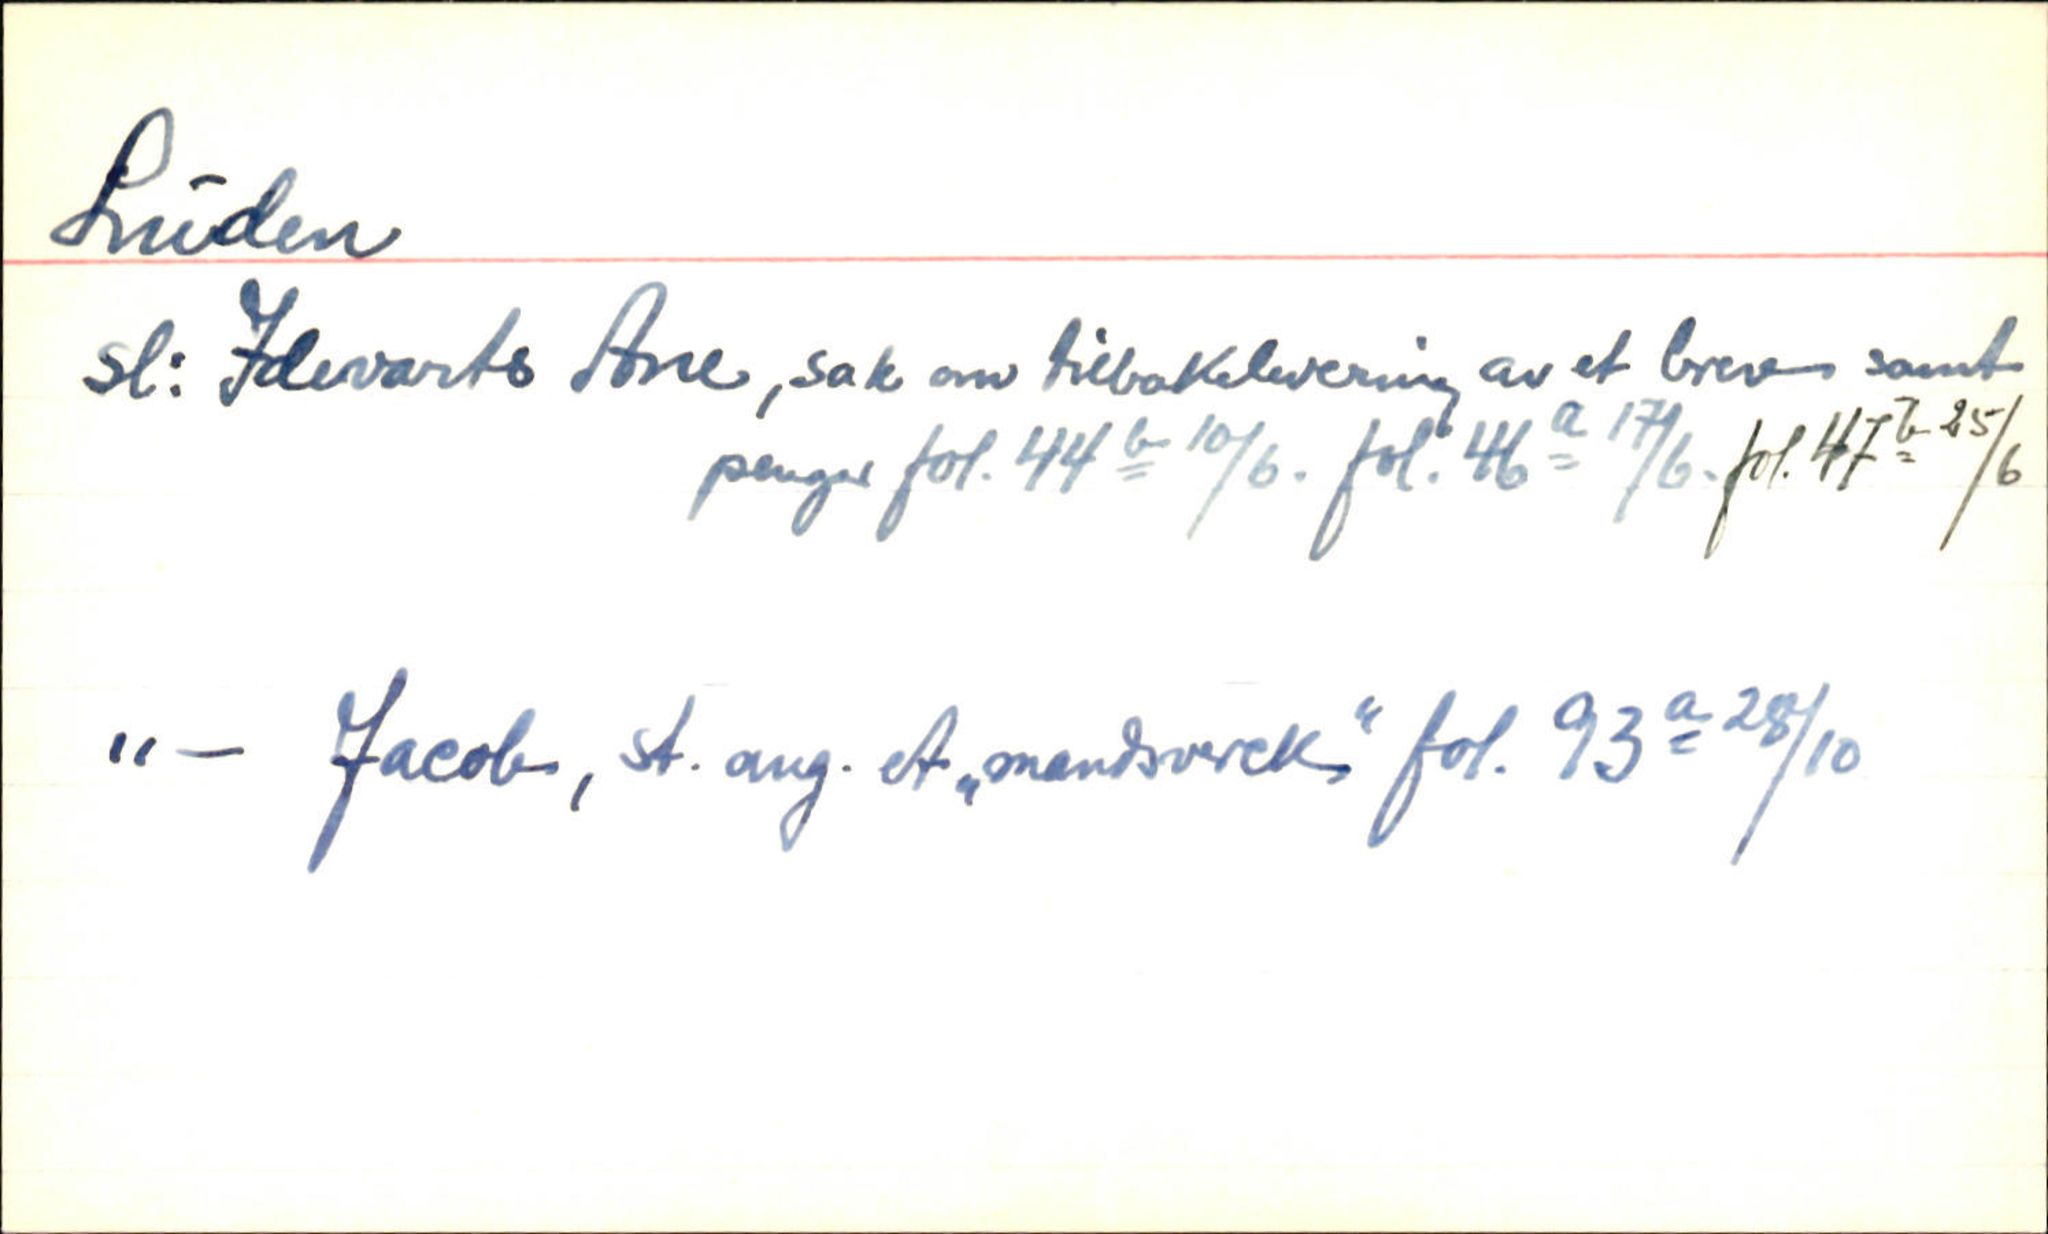 Lūden
sl: Idevarts Ane, sak om tilbakelevering av et brev samt
penger fol. 44 b 10/6. fol. 46 a 17/6. fol. 47 b 25/6
"— Jacob, st. ang. et „mandsverck“ fol. 93 a 28/10